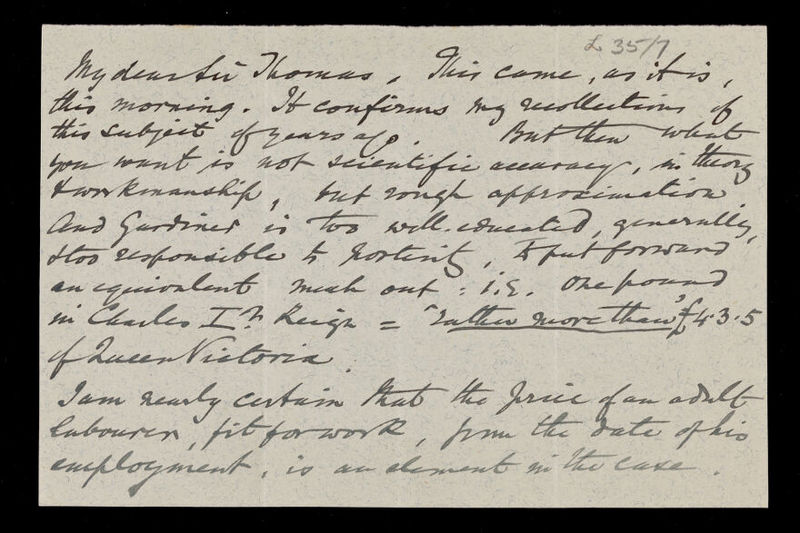 L 35/7
My dear Sir Thomas, This came, as it is,
this morning. It confirms my recollections of
this subject of years ago. But then what
you want is not scientific accuracy, in theory
& workmanship, but rough approximation
And Gardiner is too well-educated, generally,
& too responsible to Posterity, to put forward
an equivalent out: i.e. One pound
in Charles Ist's Reign = "rather more than" £4.3.5
of Queen Victoria.
I am nearly certain that the price of an adult
labourer, fit for work, from the date of his
employment, is an element in the case.